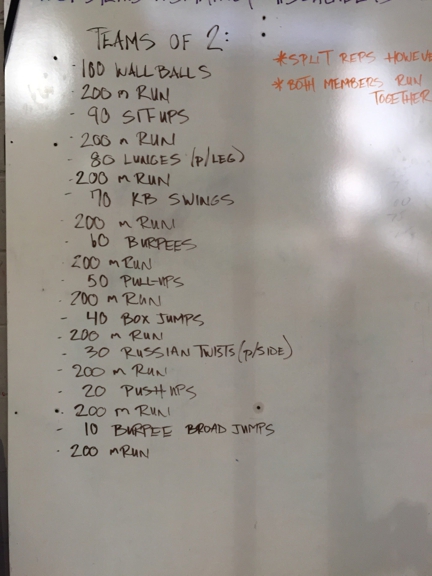 TEAMS OF 2:
- 100 WALLBALLS
- 200 m RUN
- 90 SIT UPS
- 200 m RUN
- 80 LUNGES (P/LEG)
- 200 m RUN
- 70 KB SWINGS
- 200 m RUN
- 60 BURPEES
- 200 m RUN
- 50 PULL-UPS
- 200 m RUN
- 40 BOX JUMPS
- 200 m RUN
- 30 RUSSIAN TWISTS (P/SIDE)
- 200 m RUN
- 20 PUSH UPS
- 200 m RUN
- 10 BURPEE BROAD JUMPS
- 200 m RUN
*SPLIT REPS HOWEVE
* BOTH MEMBERS RUN
TOGETHER